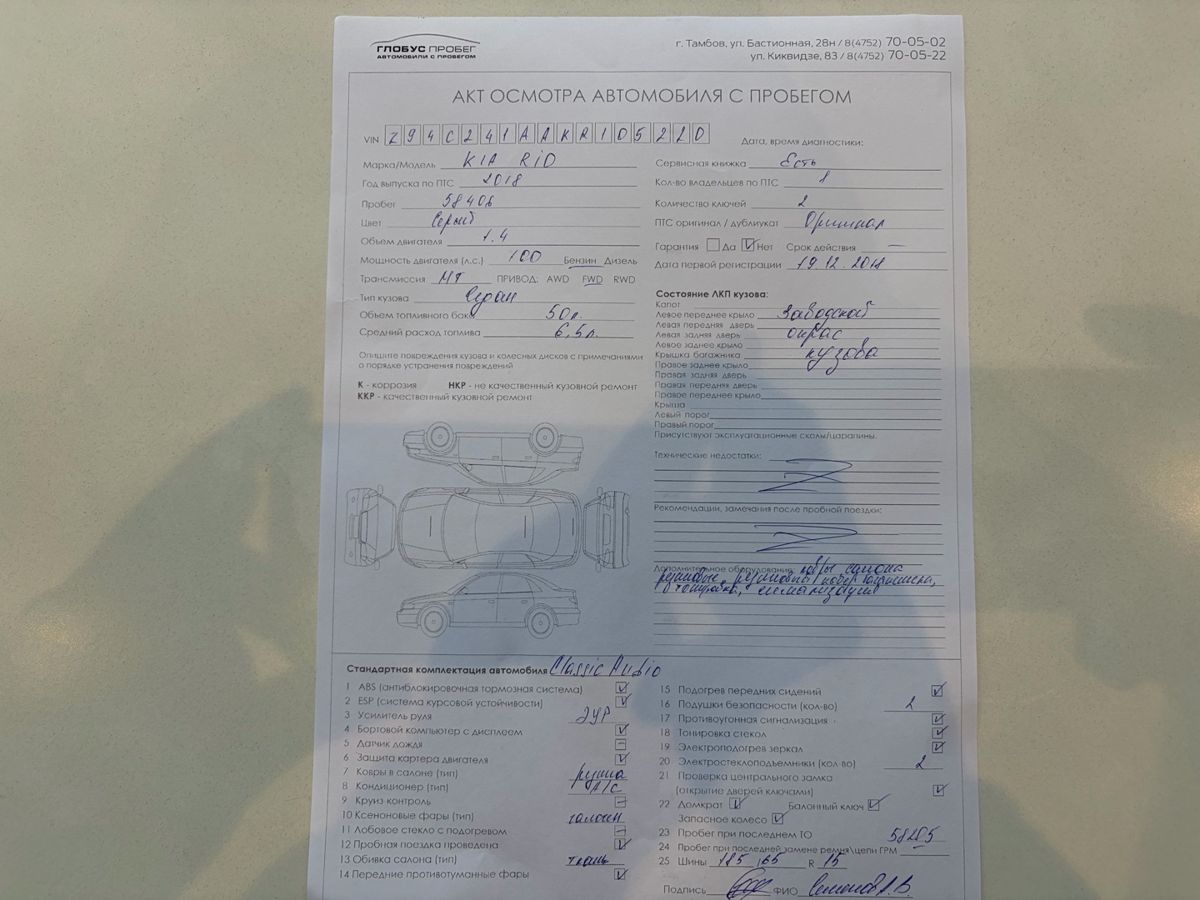 ГЛОБУС ПРОБЕГ
АВТОМОБИЛИ С ПРОБЕГОМ
г. Тамбов, ул. Бастионная, 28н / 8(4752) 70-05-02
ул. Киквидзе, 83 / 8(4752) 70-05-22
АКТ ОСМОТРА АВТОМОБИЛЯ С ПРОБЕГОМ
VIN Z94C241AAKR105220
Марка/Модель KIA RIO
Год выпуска по ПТС 2018
Пробег 58406
Цвет Серый
Объем двигателя 1.4
Мощность двигателя (л.с.) 100 Бензин Дизель
Трансмиссия МТ ПРИВОД: AWD FWD RWD
Тип кузова Седан
Объем топливного бака 50л.
Средний расход топлива 6,5л.
Опишите повреждения кузова и колесных дисков с примечаниями
о порядке устранения повреждений
К - коррозия НКР - не качественный кузовной ремонт
ККР - качественный кузовной ремонт
Дата, время диагностики:
Сервисная книжка Есть
Кол-во владельцев по ПТС 1
Количество ключей 2
ПТС оригинал / дубликат Оригинал
Гарантия Да Нет Срок действия —
Дата первой регистрации 19.12.2018
Состояние ЛКП кузова:
Капот
Левое переднее крыло Заводской
Левая передняя дверь
Левая задняя дверь окрас
Левое заднее крыло
Крышка багажника кузова
Правое заднее крыло
Правая задняя дверь
Правая передняя дверь
Правое переднее крыло
Крыша
Левый порог
Правый порог
Присутствуют эксплуатационные сколы/царапины.
Технические недостатки:
Рекомендации, замечания после пробной поездки:
Дополнительное оборудование: ковры салона
резиновые, резиновый ковер багажника,
тонировка, сигнализация
Стандартная комплектация автомобиля Classic Audio
1 ABS (антиблокировочная тормозная система)
2 ESP (система курсовой устойчивости)
3 Усилитель руля ЭУР
4 Бортовой компьютер с дисплеем
5 Датчик дождя
6 Защита картера двигателя
7 Ковры в салоне (тип) резина
8 Кондиционер (тип) A/C
9 Круиз-контроль
10 Ксеноновые фары (тип) галоген
11 Лобовое стекло с подогревом
12 Пробная поездка проведена
13 Обивка салона (тип) ткань
14 Передние противотуманные фары
15 Подогрев передних сидений
16 Подушки безопасности (кол-во) 2
17 Противоугонная сигнализация
18 Тонировка стекол
19 Электроподогрев зеркал
20 Электростеклоподъемники (кол-во) 2
21 Проверка центрального замка
(открытие дверей ключами)
22 Домкрат Балонный ключ
Запасное колесо
23 Пробег при последнем ТО
24 Пробег при последней замене ремня\цепи ГРМ
25 Шины 185 65 R 15
Подпись ФИО Семенов А.В.